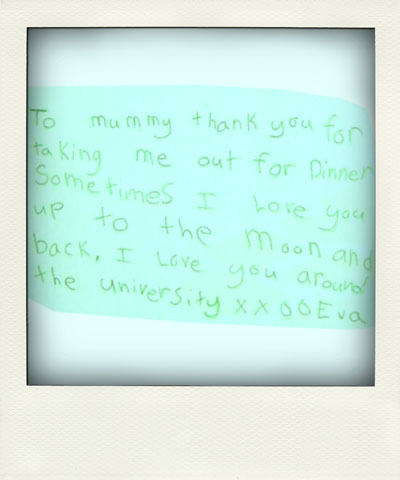 To mummy thank you for
taking me out for Dinner
Sometimes I Love you
up to the moon and
back. I Love you around
the university X X O O Eva